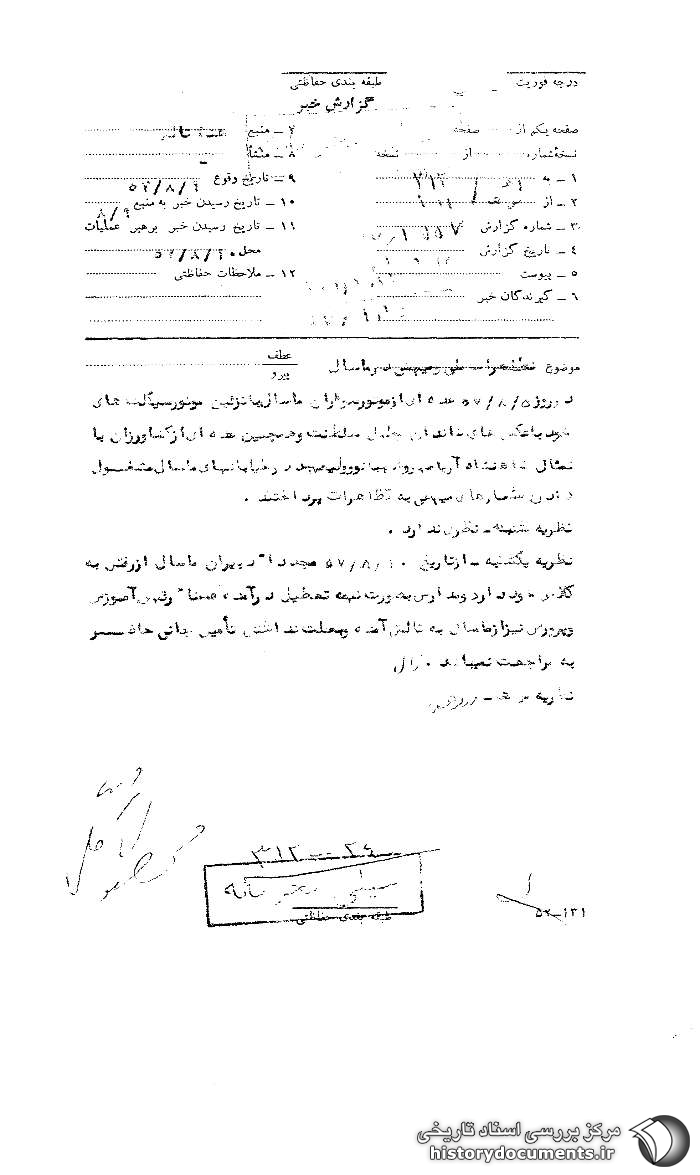 درجه فوریت طبقه بندی حفاظتی
گزارش خبر
صفحه یکم از صفحه ۷ ـ منبع
نسخه شماره از نسخه ۸ ـ منشأ
۱ ـ به ۳۱۲ ۹ ـ تاریخ وقوع
۲ ـ از ۱۰ ـ تاریخ رسیدن خبر به منبع ۸/۹
۳ ـ شماره گزارش ۱۱ ـ تاریخ رسیدن خبر برهبر عملیات
٤ ـ تاریخ گزارش محل
۵ ـ پیوست ۱۲ ـ ملاحظات حفاظتی
٦ ـ گیرندگان خبر
موضوع تظاهرات ملی و میهنی در ماسال عطف
پیرو
در روز ۵۷/۸/۵ عده ای از موتورسواران ماسال با تزئین موتورسیکلت های
خود با عکس های خاندان جلیل سلطنت و همچنین عده ای از کشاورزان با
تمثال شاهنشاه آریامهر و در خیابانهای ماسال مشغول
دادن شعارهای میهنی به تظاهرات پرداختند .
نظریه شنبه ـ نظری ندارد .
نظریه یکشنبه ـ از تاریخ ۵۷/۸/۱۰ مجدداً دبیران ماسال از رفتن به
کلاس خودداری و مدارس بصورت نیمه تعطیل درآمده ضمناً رئیس آموزش
و پرورش نیز از ماسال به تالش آمده و بعلت نداشتن تأمین جانی حاضر
به مراجعت نمیباشد .
نظریه
۳۱۲ ــ ۲٤
طبقه بندی حفاظتی
۵۲ــ۱۳۱
مرکز بررسی اسناد تاریخی
historydocuments.ir